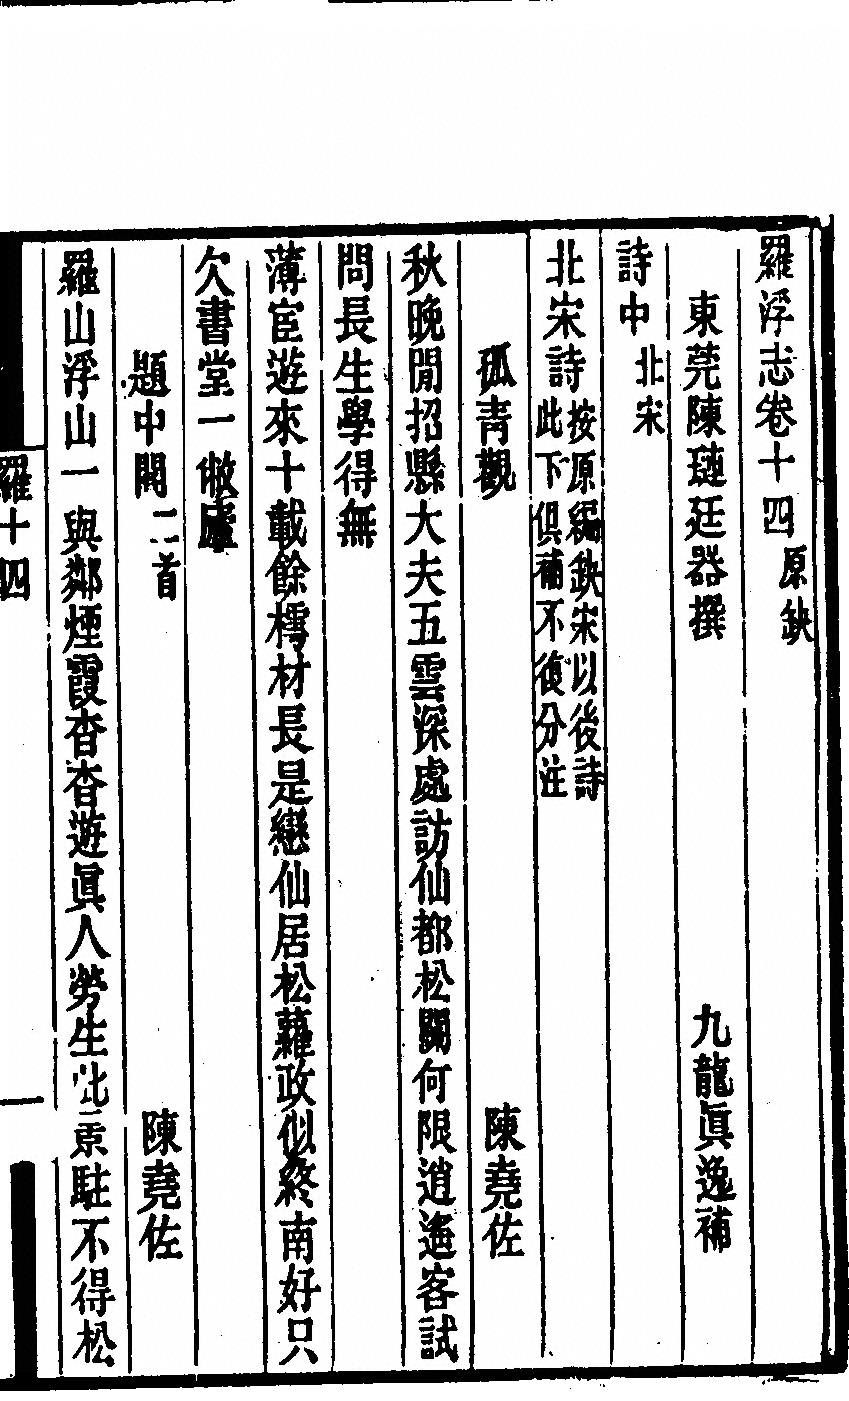 羅浮志卷十四原缺
東莞陳璉廷器撰 九龍眞逸補
詩中北宋
北宋詩按原編缺宋以後詩此下俱補不復分注
孤青觀 陳堯佐
秋晚閒招縣大夫五雲深處訪仙都松關何限逍遙客試
問長生學得無
薄宦遊來十載餘樗材長是戀仙居松蘿政似終南好只
欠書堂一敝廬
題中閣二首 陳堯佐
羅山浮山一與鄰煙霞杳杳遊眞人勞生此景駐不得松
羅十四
一